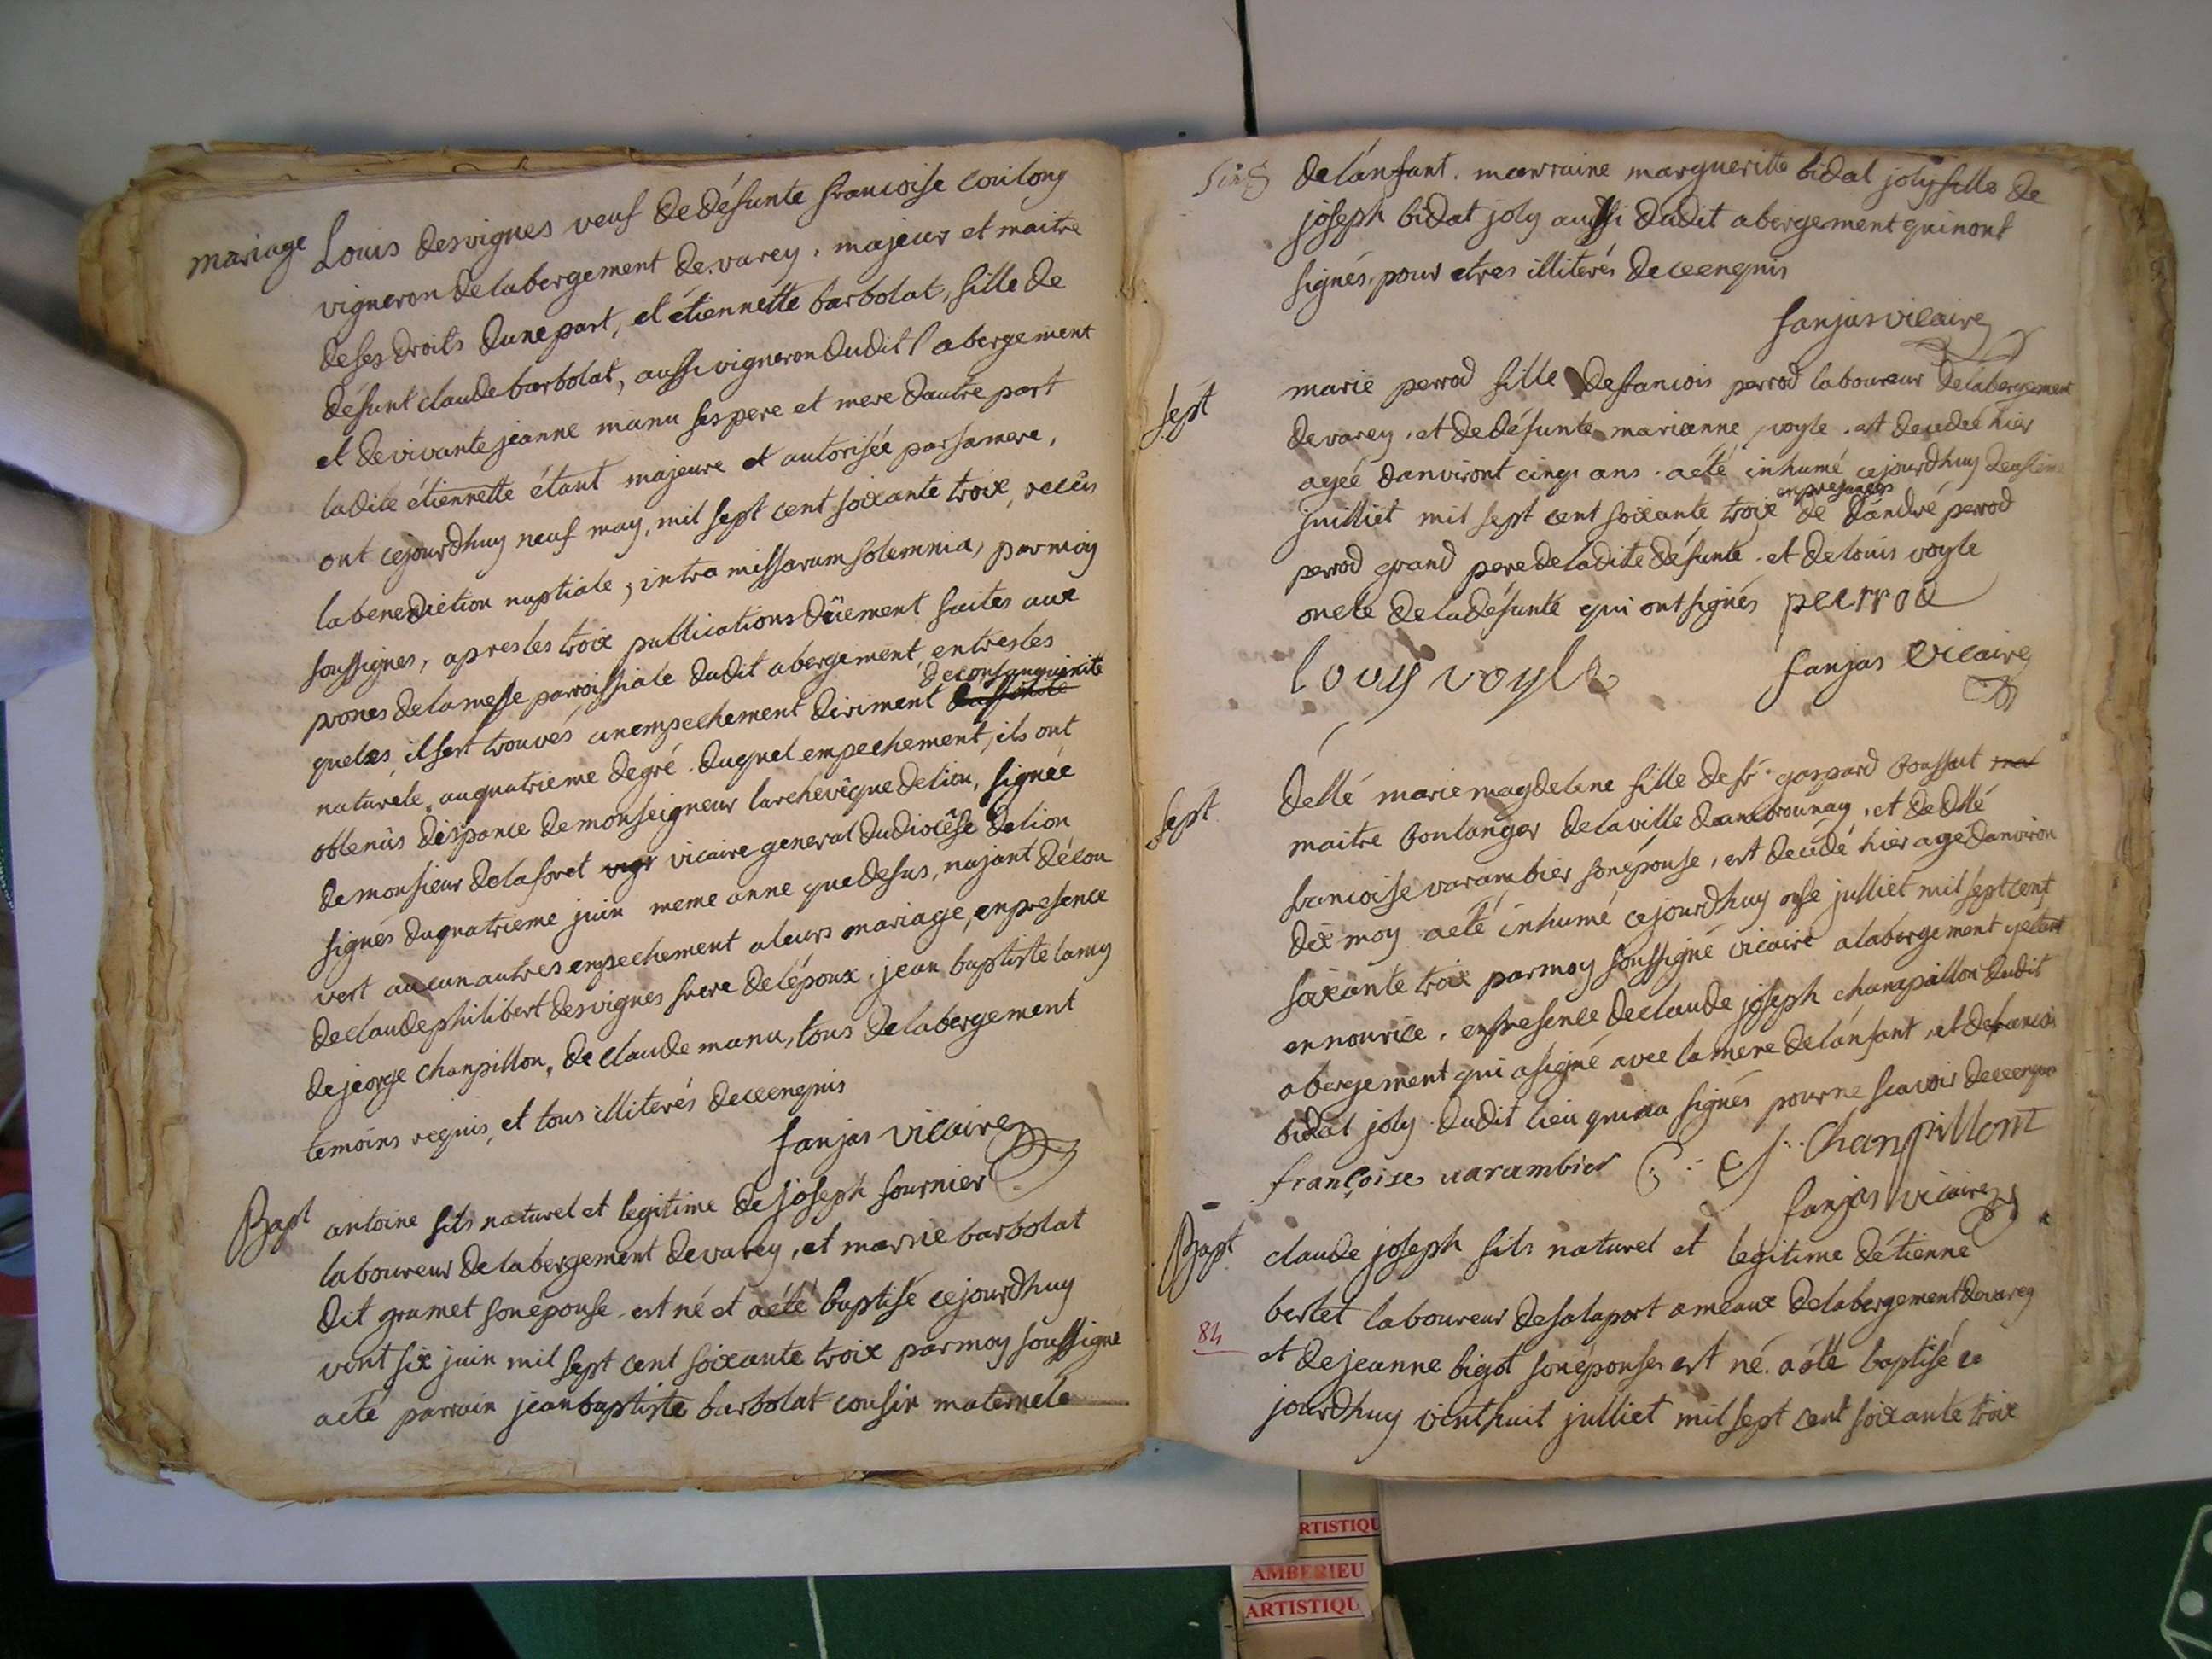 mariage Louis desvignes veuf de défunte francoise coulong
vigneron de labergement de varey, majeur et maitre
de ses droits dune part, et étiennétte barbolat, fille de
défunt claude barbolat, aussi vigneron dudit l abergement
et de vivante jeanne manu ses pere et mere dautre part
ladite étiennette étant majeure et autorisée par sa mere,
ont cejourdhuy neuf may, mil sept cent soixante troix, reçûs
la benediction nuptiale, intra missarum solemnia, par moy
soussignes, apres les troix publications dûement faites aux
prones de la messe parroissiale dudit abergement, entres les
quelxs, il sest trouvés un empechement diriment de consanguinité
naturele, au quatrieme degré. duquel empechement, ils ont
obtenûs dispance de monseigneur larchevêque de lion, signée
de monsieur delaforet vicaire general du diocêse de lion
signés du quatrieme juin meme anne que desus, najant décou
vert aucun autres empechement a leurs mariage, en presence
de claude philibert desvignes frere de lépoux, jean baptiste lamy
de jeorge chanpillon, de claude manu, tous de labergement
temoins requis, et tous illiterés de ce enquis
fanjas vicaire
Bapt antoine fils naturel et legitime de joseph fournier
laboureur de labergement de varey, et marie barbolat
dit grumet son épouse est né et aété baptisé cejourdhuy
vint six juin mil sept cent soixante troix par moy soussigne
aeté parrain jean baptiste barbolat cousin maternele
de lánfant. marraine margueritte bidat joly fille de
joseph bidat joly aussi dudit abergement qui nont
signés, pour etres illiterés de ce enquis
fanjas vicaire
sept marie perrod fille de francois perrod laboureur de labergement
de varey, et de défunte marianne voyle. est decedeé hier
ageé danviront cinqs ans. aété inhumé cejourdhuy
juilliet mil sept cent soixante troix en presances de dandré perrod
perrod grand pere de ladite défunte. et de louis voyle
oncle de la défunte qui ont signés perrod
louys voyle fanjas vicaire
sept dellé marie magdelene fille de sr. gaspard boussut
maitre boulanger de la ville dambrounay, et de dllé
francoise varambier son épouse, est décédé hier agé danviron
dix moy aété inhumé cejourdhuy onse julliet mil sept cent
soixante troix par moy soussigné vicaire a labergement y etant
en nourice, en presence de claude joseph chanpillon dudit
abergement qui a signé avec la mere de lánfant, et de francois
bidat joly dudit lieu qui na signés pour ne scavoir de ce enquis
françoise varambier C. J. Chanpillont
fanjas vicaire
Bapt claude joseph fils naturel et legitime détienne
bertet laboureur de salaport ameaux de labergement de varey
84 et de jeanne bigot son épouse est né. aété baptisé ce
jourdhuy vint huit julliet mil sept cent soixante troix
RTISTIQU
AMBERIEU
ARTISTIQU